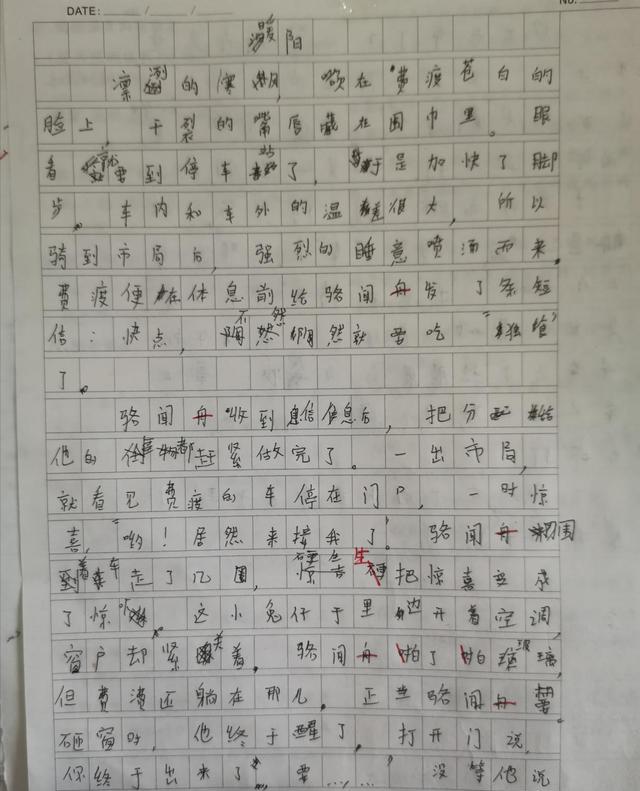 DATE: / / No.
暖阳
凛冽的寒风,吹在费渡苍白的
脸上,干裂的嘴唇藏在围巾里。眼
看就要到停车站了,于是加快了脚
步。车内和车外的温差很大,所以
骑到市局后,强烈的睡意喷洒而来。
费渡便在休息前给骆闻舟发了条短
信:快点,不然 然就要吃“独食”
了。
骆闻舟收到信息后,把分给
他的任务都赶紧做完了。一出市局,
就看见费渡的车停在门口,一时惊
喜,“哟!居然来接我了”。骆闻舟围
着车走了几圈,惊 把惊喜变成
了惊吓。这小兔仔子里边开着空调,
窗户却紧关着。骆闻舟拍了拍玻璃,
但费渡还躺在那儿。正当骆闻舟要
砸窗时,他终于醒了。打开门说,
你终于出来了,要……”没等他说